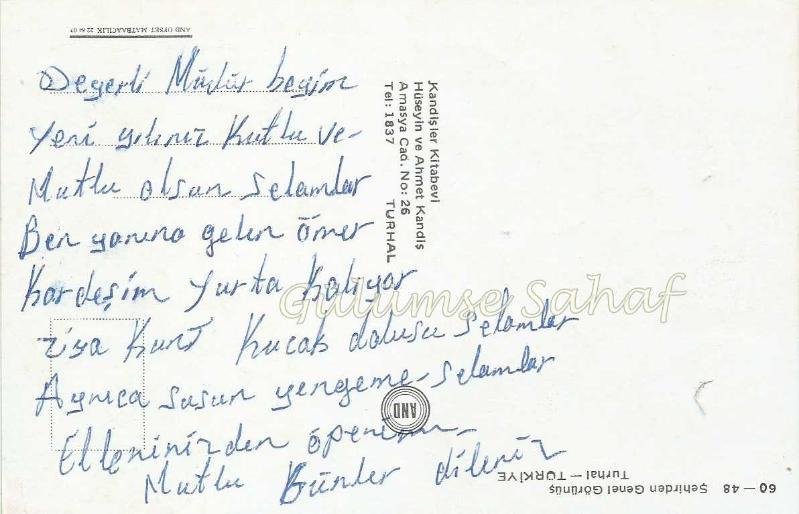 AND OFSET MATBAACILIK 22 61 07
Değerli Müdür beğim
Yeni yılınız Kutlu ve-
Mutlu olsun selamlar
Ben yanına gelen Ömer
Kardeşim yurta Kalıyor
Ziya Kurt Kucak dolusu selamlar
Ayrıca susun yengeme-selamlar
Elleninizden öperim-
Mutlu Günler dileriz
Kandişler Kitabevi
Hüseyin ve Ahmet Kandiş
Amasya Cad. No: 26
Tel: 1837 TURHAL
Gülümse Sahaf
AND
60 — 48 Şehirden Genel Görünüş
Turhal — TÜRKİYE